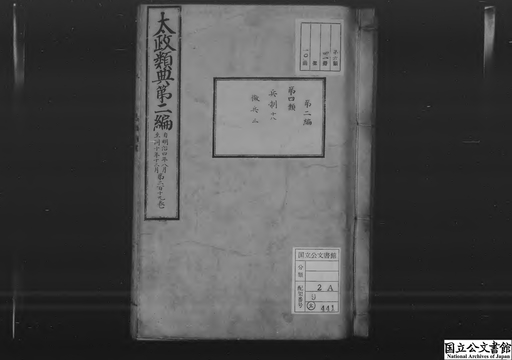 太政類典第二編
自明治四年八月
至同十年十二月
第二百十九巻
第二編
第四類
兵制十八
徴兵三
国立公文書館
分類
配架番号
2A
9
441
国立公文書館
National Archives of Japan